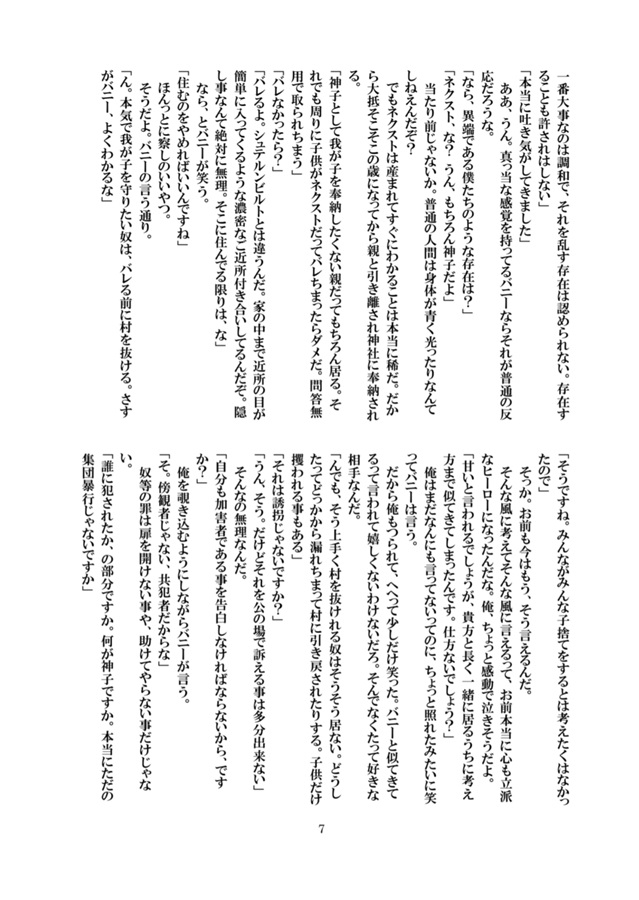 一番大事なのは調和で、それを乱す存在は認められない。存在す
ることも許されはしない」
「本当に吐き気がしてきました」
ああ、うん。真っ当な感覚を持ってるバニーならそれが普通の反
応だろうな。
「なら、異端である僕たちのような存在は？」
「ネクスト、な？うん、もちろん神子だよ」
当たり前じゃないか。普通の人間は身体が青く光ったりなんて
しねえんだぞ？
でもネクストは産まれてすぐにわかることは本当に稀だ。だか
ら大抵そこそこの歳になってから親と引き離され神社に奉納され
る。
「神子として我が子を奉納したくない親だってもちろん居る。そ
れでも周りに子供がネクストだってバレちまったらダメだ。問答無
用で取られちまう」
「バレなかったら？」
「バレるよ。シュテルンビルトとは違うんだ。家の中まで近所の目が
簡単に入ってくるような濃密なご近所付き合いしてるんだぞ。隠
し事なんて絶対に無理。そこに住んでる限りは、な」
なら、とバニーが笑う。
「住むのをやめればいいんですね」
ほんっとに察しのいいやつ。
そうだよ。バニーの言う通り。
「ん。本気で我が子を守りたい奴は、バレる前に村を抜ける。さす
がバニー、よくわかるな」
「そうですね。みんながみんな子捨てをするとは考えたくはなかっ
たので」
そっか。お前も今はもう、そう言えるんだ。
そんな風に考えてそんな風に言えるって、お前本当に心も立派
なヒーローになったんだな。俺、ちょっと感動で泣きそうだよ。
「甘いと言われるでしょうが、貴方と長く一緒に居るうちに考え
方まで似てきてしまったんです。仕方ないでしょう？」
俺はまだなんにも言ってないってのに、ちょっと照れたみたいに笑
ってバニーは言う。
だから俺もつられて、へへって少しだけ笑った。バニーと似てきて
るって言われて嬉しくないわけないだろ。そんでなくたって好きな
相手なんだ。
「んでも、そう上手く村を抜けれる奴はそうそう居ない。どうし
たってどっかから漏れちまって村に引き戻されたりする。子供だけ
攫われる事もある」
「それは誘拐じゃないですか？」
「うん、そう。だけどそれを公の場で訴える事は多分出来ない」
そんなの無理なんだ。
「自分も加害者である事を告白しなければならないから、です
か？」
俺を覗き込むようにしながらバニーが言う。
「そ。傍観者じゃない、共犯者だからな」
奴等の罪は扉を開けない事や、助けてやらない事だけじゃな
い。
「誰に犯されたか、の部分ですか。何が神子ですか。本当にただの
集団暴行じゃないですか」
7